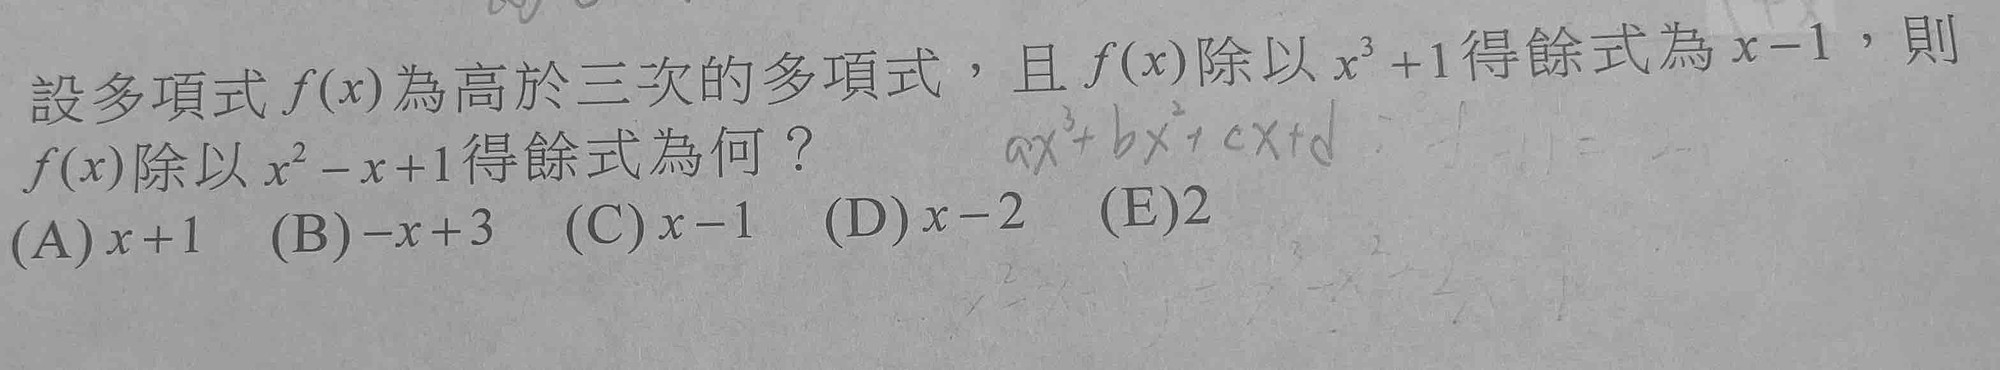 設多項式 f(x) 為高於三次的多項式，且 f(x) 除以 x³+1 得餘式為 x－1，則
f(x) 除以 x²－x+1 得餘式為何？
ax³+bx²+cx+d
(A) x+1 (B) －x+3 (C) x－1 (D) x－2 (E) 2